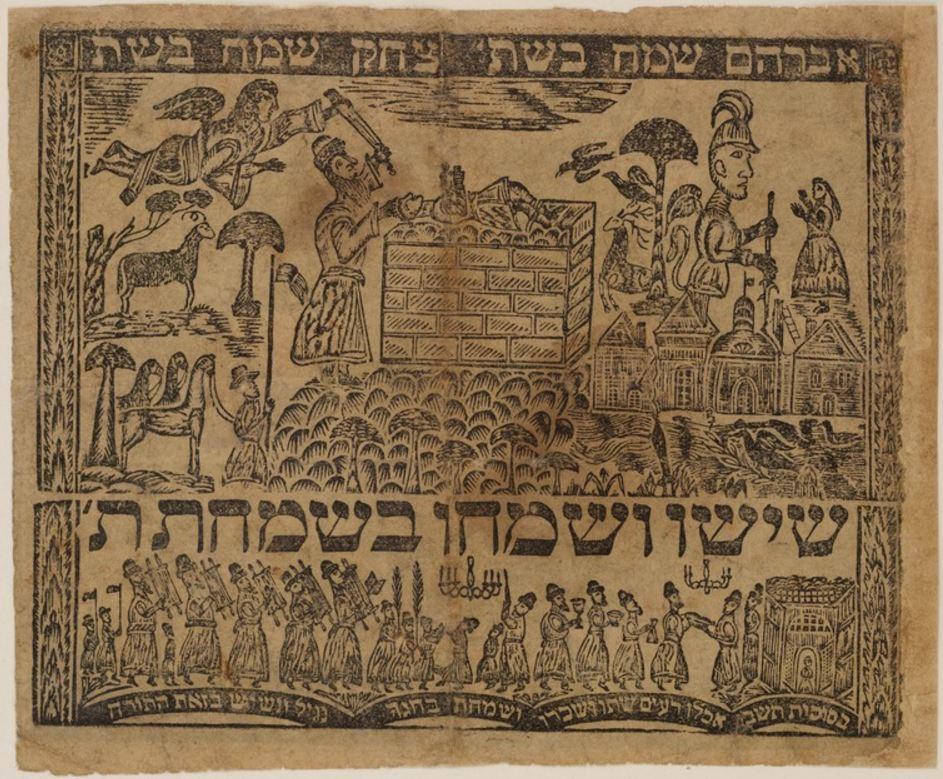 אברהם שמח בשת יצחק שמח בשת
שישו ושמחו בשמחת ת'
בסוכות תשבו אכלו רעים שתו ושכרו ושמחת בחגך נגיל ונשיש בזאת התורה